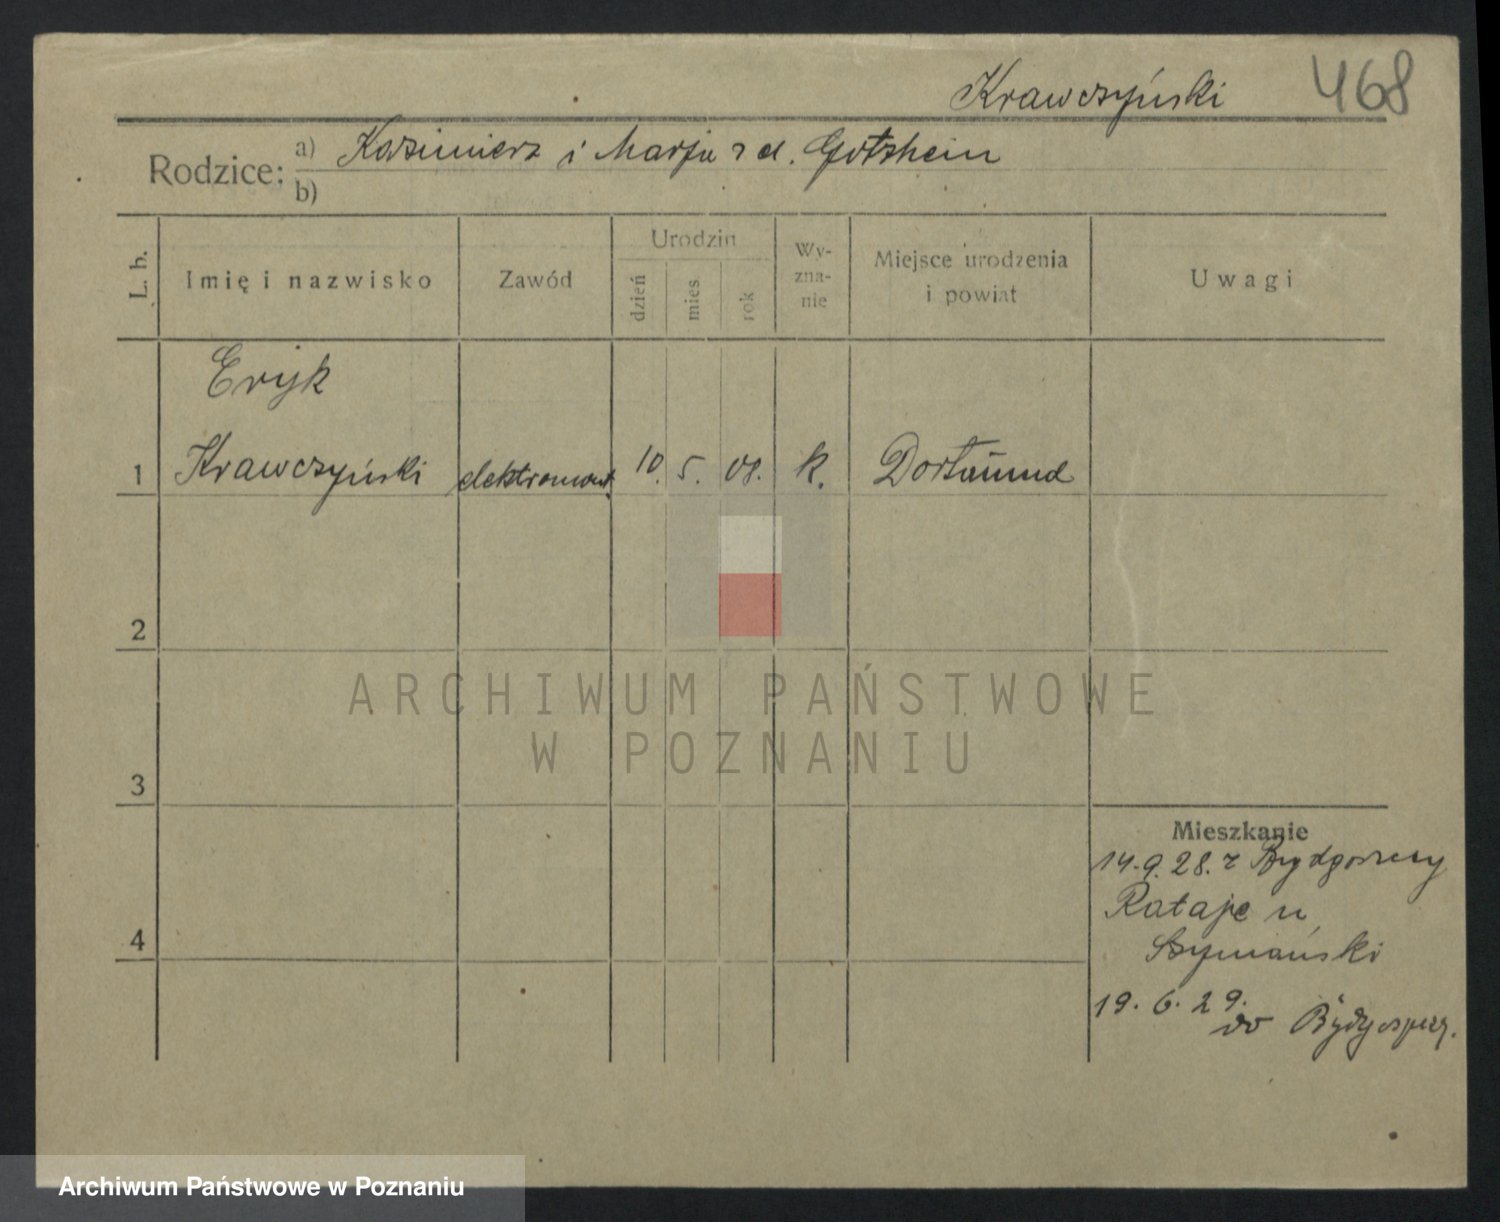 Krawczyński
468
Rodzice: a) Kazimierz i Marja z d. Gotshein
b)
L. b.
Imię i nazwisko
Zawód
Urodzin
dzień
mies.
rok
Wy-
zna-
nie
Miejsce urodzenia
i powiat
Uwagi
Eryk
1 Krawczyński elektromont. 10. 5. 08. k. Dortmund
2
ARCHIWUM PAŃSTWOWE
W POZNANIU
3
Mieszkanie
14.9.28. z Bydgoszczy
Rataje u
Szymański
4
19. 6. 29.
do Bydgoszczy.
Archiwum Państwowe w Poznaniu